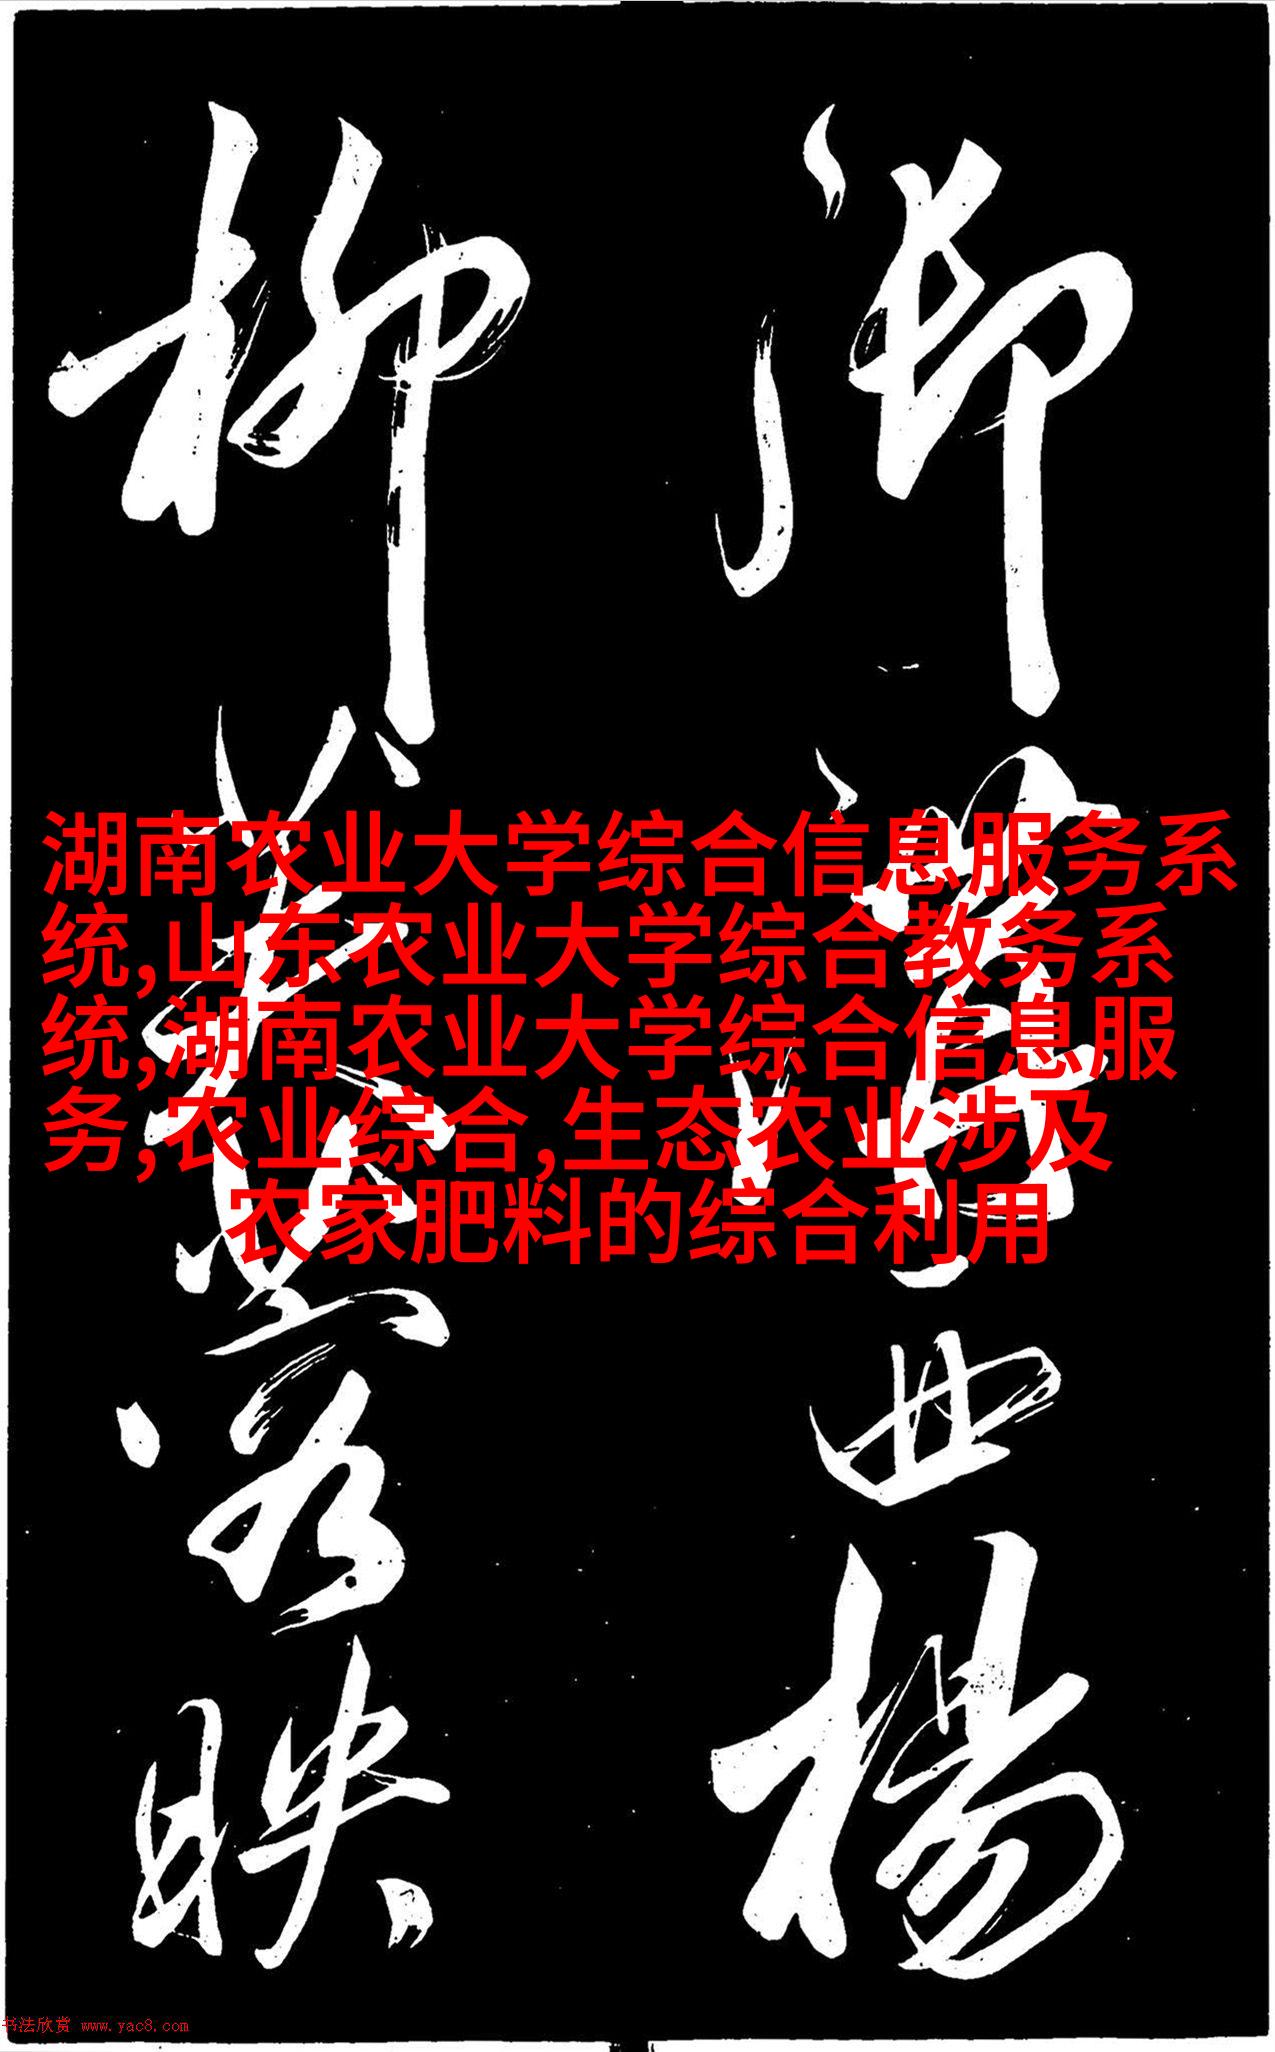 御沟
西杨
柳
落
映
湖南农业大学综合信息服务系
统,山东农业大学综合教务系
统,湖南农业大学综合信息服
务,农业综合,生态农业涉及
农家肥料的综合利用
书法欣赏 www.yac8.com